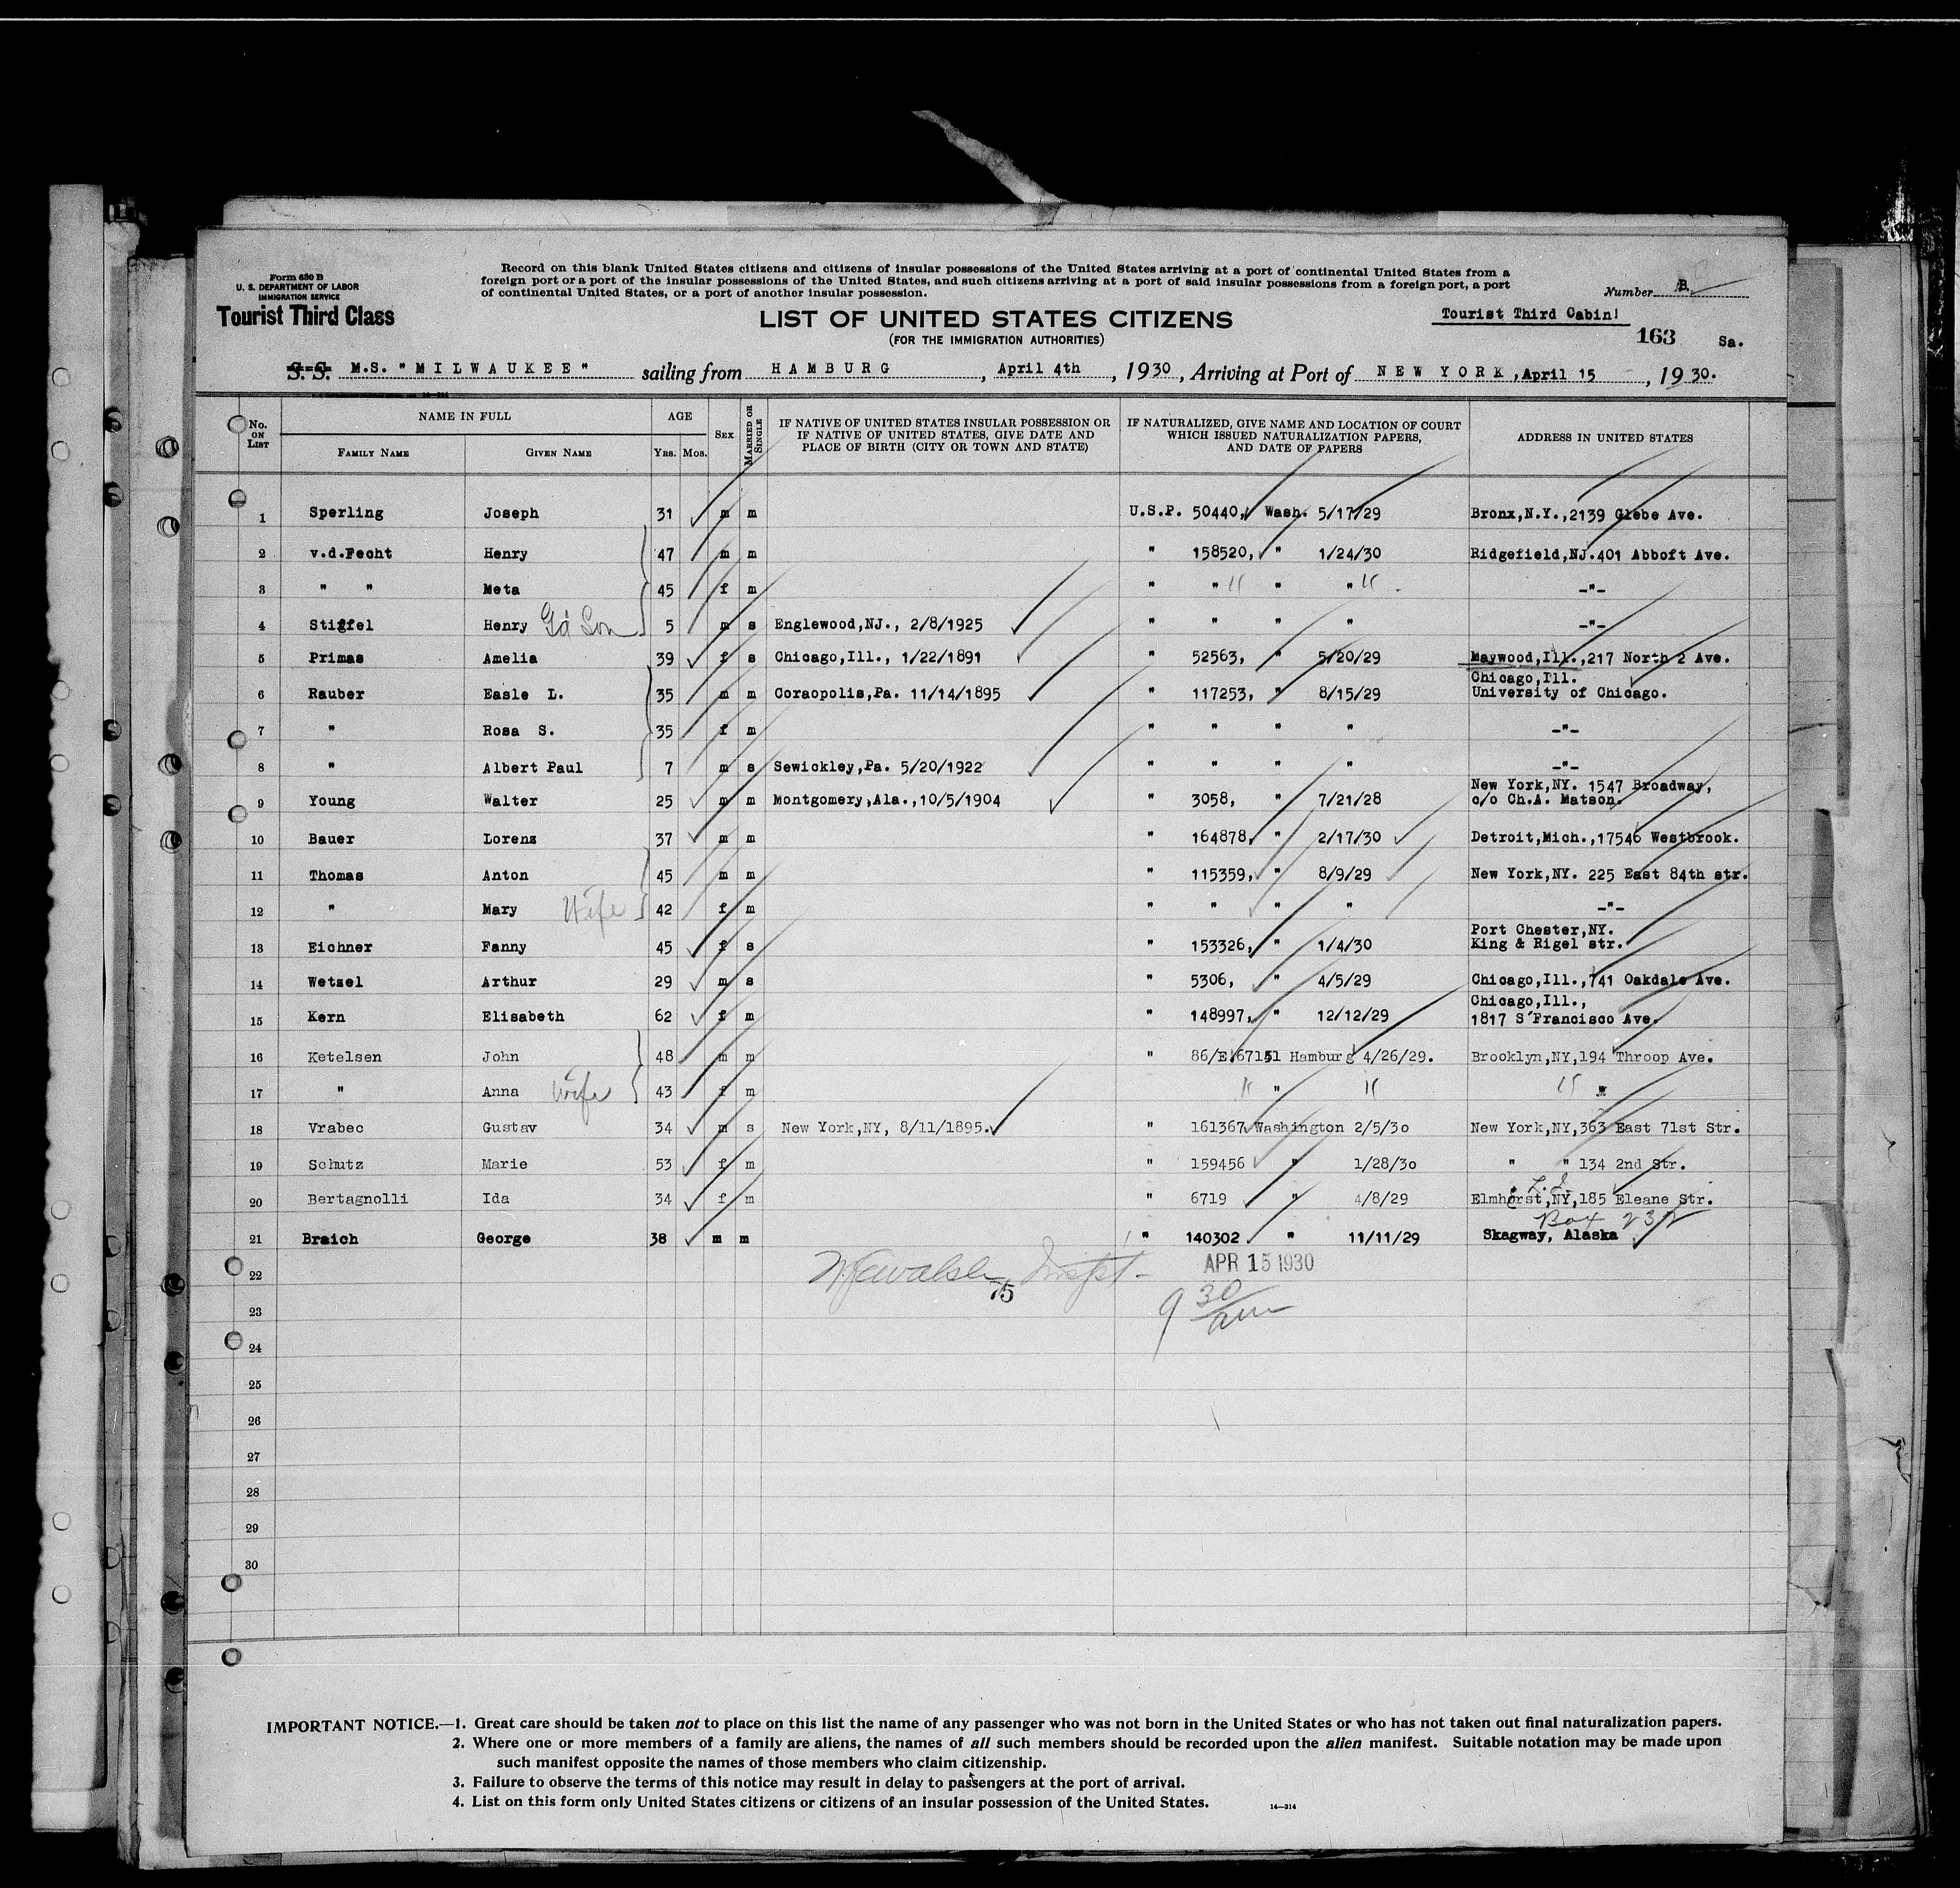 Form 630 B
U. S. DEPARTMENT OF LABOR
IMMIGRATION SERVICE
Tourist Third Class
Record on this blank United States citizens and citizens of insular possessions of the United States arriving at a port of continental United States from a
foreign port or a port of the insular possessions of the United States, and such citizens arriving at a port of said insular possessions from a foreign port, a port
of continental United States, or a port of another insular possession.
Number B
LIST OF UNITED STATES CITIZENS
(FOR THE IMMIGRATION AUTHORITIES)
Tourist Third Cabin!
163 Sa.
S. S. M.S. "MILWAUKEE" sailing from HAMBURG, April 4th, 1930, Arriving at Port of NEW YORK, April 15, 1930.
No. ON LIST
NAME IN FULL
FAMILY NAME
GIVEN NAME
AGE
YRS. MOS.
SEX
MARRIED OR SINGLE
IF NATIVE OF UNITED STATES INSULAR POSSESSION OR
IF NATIVE OF UNITED STATES, GIVE DATE AND
PLACE OF BIRTH (CITY OR TOWN AND STATE)
IF NATURALIZED, GIVE NAME AND LOCATION OF COURT
WHICH ISSUED NATURALIZATION PAPERS,
AND DATE OF PAPERS
ADDRESS IN UNITED STATES
1 Sperling Joseph 31 m m U.S.P. 50440, Wash. 5/17/29 Bronx,N.Y.,2139 Glebe Ave.
2 v.d.Fecht Henry 47 m m " 158520, " 1/24/30 Ridgefield,NJ.401 Abboft Ave.
3 " " Meta 45 f m " " " " " " -"-
4 Stiffel Henry Gd Son 5 m s Englewood,NJ., 2/8/1925 " " " " -"-
5 Primas Amelia 39 f s Chicago,Ill., 1/22/1891 " 52563, " 5/20/29 Maywood,Ill.,217 North 2 Ave.
6 Rauber Easle L. 35 m m Coraopolis,Pa. 11/14/1895 " 117253, " 8/15/29 Chicago,Ill.
University of Chicago.
7 " Rosa S. 35 f m " " " " -"-
8 " Albert Paul 7 m s Sewickley,Pa. 5/20/1922 " " " " -"-
9 Young Walter 25 m m Montgomery,Ala.,10/5/1904 " 3058, " 7/21/28 New York,NY. 1547 Broadway,
c/o Ch.A. Matson.
10 Bauer Lorenz 37 m m " 164878, " 2/17/30 Detroit,Mich.,17546 Westbrook.
11 Thomas Anton 45 m m " 115359, " 8/9/29 New York,NY. 225 East 84th str.
12 " Mary Wife 42 f m " " " " -"-
13 Eichner Fanny 45 f s " 153326, " 1/4/30 Port Chester,NY.
King & Rigel str.
14 Wetzel Arthur 29 m s " 5306, " 4/5/29 Chicago,Ill.,741 Oakdale Ave.
15 Kern Elisabeth 62 f m " 148997, " 12/12/29 Chicago,Ill.,
1817 S'Francisco Ave.
16 Ketelsen John 48 m m " 86/E Hamburg 4/26/29. Brooklyn,NY,194 Throop Ave.
17 " Anna Wife 43 f m " " " " "
18 Vrabec Gustav 34 m s New York,NY, 8/11/1895. " 161367 Washington 2/5/30 New York,NY,363 East 71st Str.
19 Schutz Marie 53 f m " 159456 " 1/28/30 " " 134 2nd Str.
20 Bertagnolli Ida 34 f m " 6719 " 4/8/29 L.I. Elmhorst,NY,185 Eleane Str.
21 Braich George 38 m m " 140302 " 11/11/29 Box 232
Skagway, Alaska
22 Inspt- APR 15 1930
75
23 9 30/am
24
25
26
27
28
29
30
IMPORTANT NOTICE.—1. Great care should be taken not to place on this list the name of any passenger who was not born in the United States or who has not taken out final naturalization papers.
2. Where one or more members of a family are aliens, the names of all such members should be recorded upon the alien manifest. Suitable notation may be made upon
such manifest opposite the names of those members who claim citizenship.
3. Failure to observe the terms of this notice may result in delay to passengers at the port of arrival.
4. List on this form only United States citizens or citizens of an insular possession of the United States.
14—314